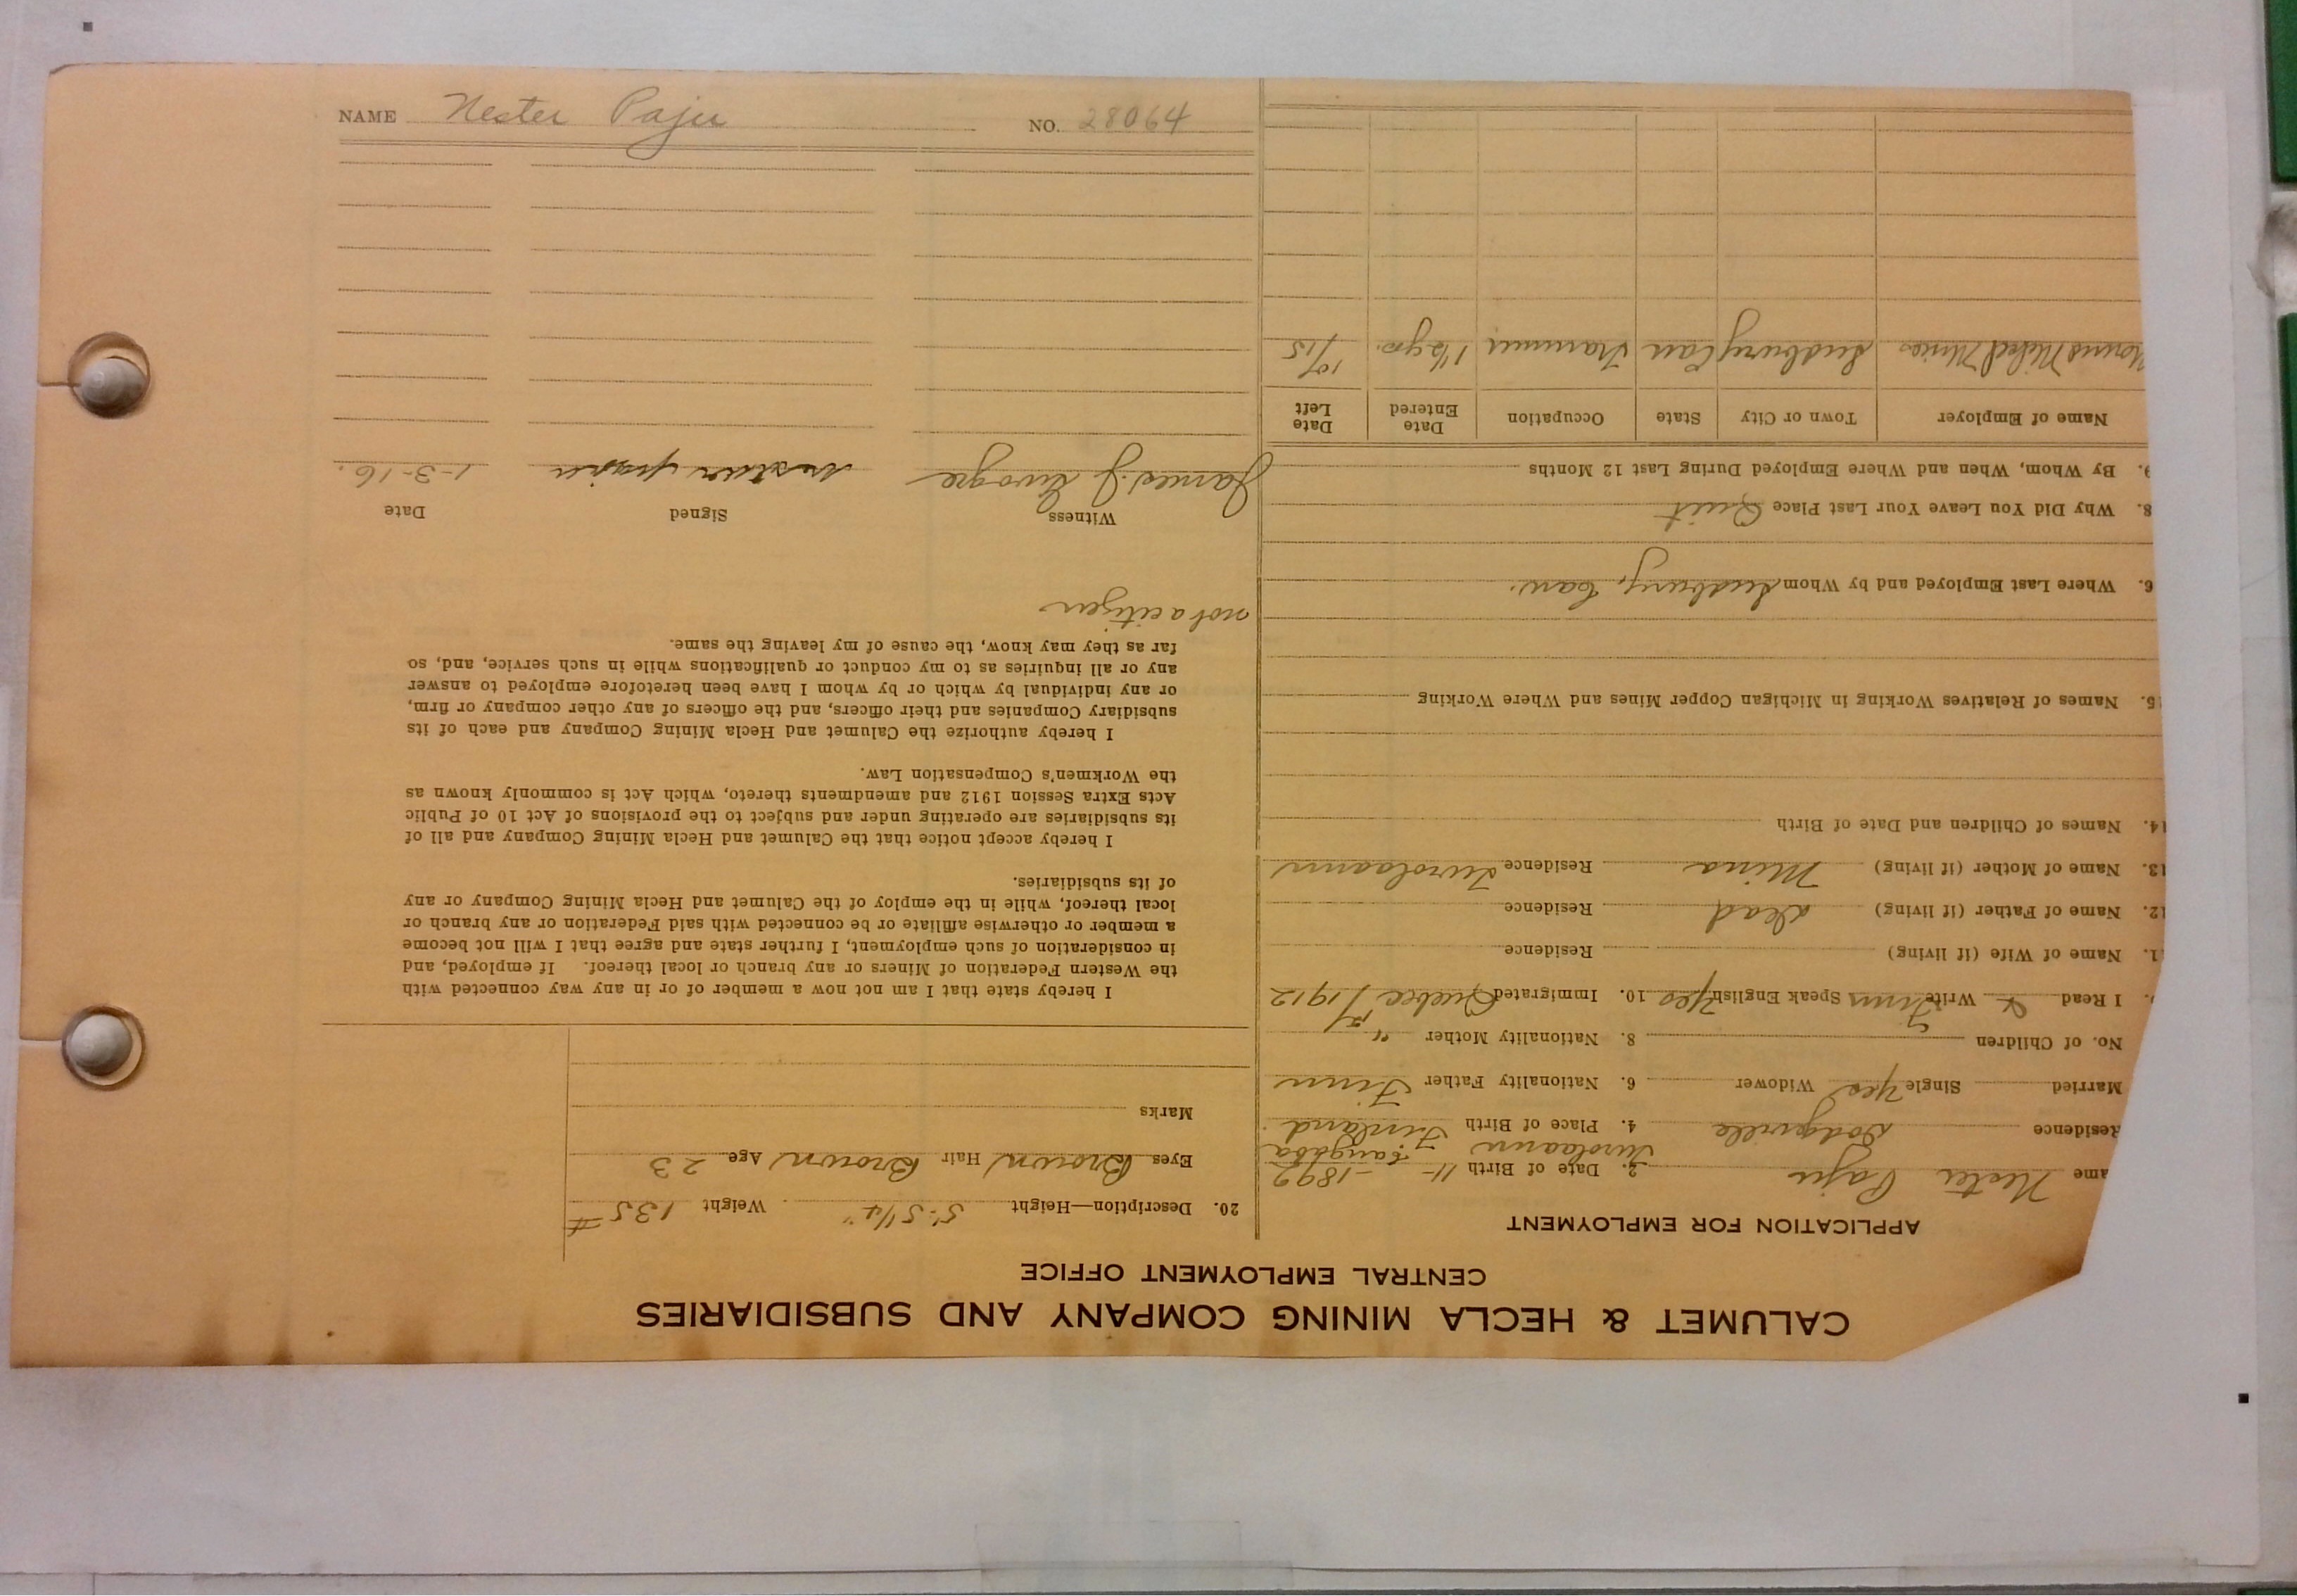 NAME Nester Paju NO. 28064
CALUMET & HECLA MINING COMPANY AND SUBSIDIARIES
CENTRAL EMPLOYMENT OFFICE
APPLICATION FOR EMPLOYMENT
ame Nester Paju 2. Date of Birth 11- -1892
Residence Dodgeville 4. Place of Birth Finland
Married Single Yes Widower 6. Nationality Father Finn
No. of Children 8. Nationality Mother "
I Read & Write Finn Speak English Yes 10. Immigrated Quebec 1912
1. Name of Wife (if living) Residence
12. Name of Father (if living) dead Residence
13. Name of Mother (if living) Mina Residence
14. Names of Children and Date of Birth
15. Names of Relatives Working in Michigan Copper Mines and Where Working
6. Where Last Employed and by Whom Sudbury, Can.
8. Why Did You Leave Your Last Place Quit
9. By Whom, When and Where Employed During Last 12 Months
Name of Employer Town or City State Occupation Date Entered Date Left
Nickel Mines Sudbury Can Trammer 1½ yrs. 10/15
20. Description—Height 5'-5¼" Weight 135#
Eyes Brown Hair Brown Age 23
Marks
I hereby state that I am not now a member of or in any way connected with
the Western Federation of Miners or any branch or local thereof. If employed, and
in consideration of such employment, I further state and agree that I will not become
a member or otherwise affiliate or be connected with said Federation or any branch or
local thereof, while in the employ of the Calumet and Hecla Mining Company or any
of its subsidiaries.
I hereby accept notice that the Calumet and Hecla Mining Company and all of
its subsidiaries are operating under and subject to the provisions of Act 10 of Public
Acts Extra Session 1912 and amendments thereto, which Act is commonly known as
the Workmen's Compensation Law.
I hereby authorize the Calumet and Hecla Mining Company and each of its
subsidiary Companies and their officers, and the officers of any other company or firm,
or any individual by which or by whom I have been heretofore employed to answer
any or all inquiries as to my conduct or qualifications while in such service, and, so
far as they may know, the cause of my leaving the same.
not a citizen
Witness Signed Date
James J. 1-3-16.